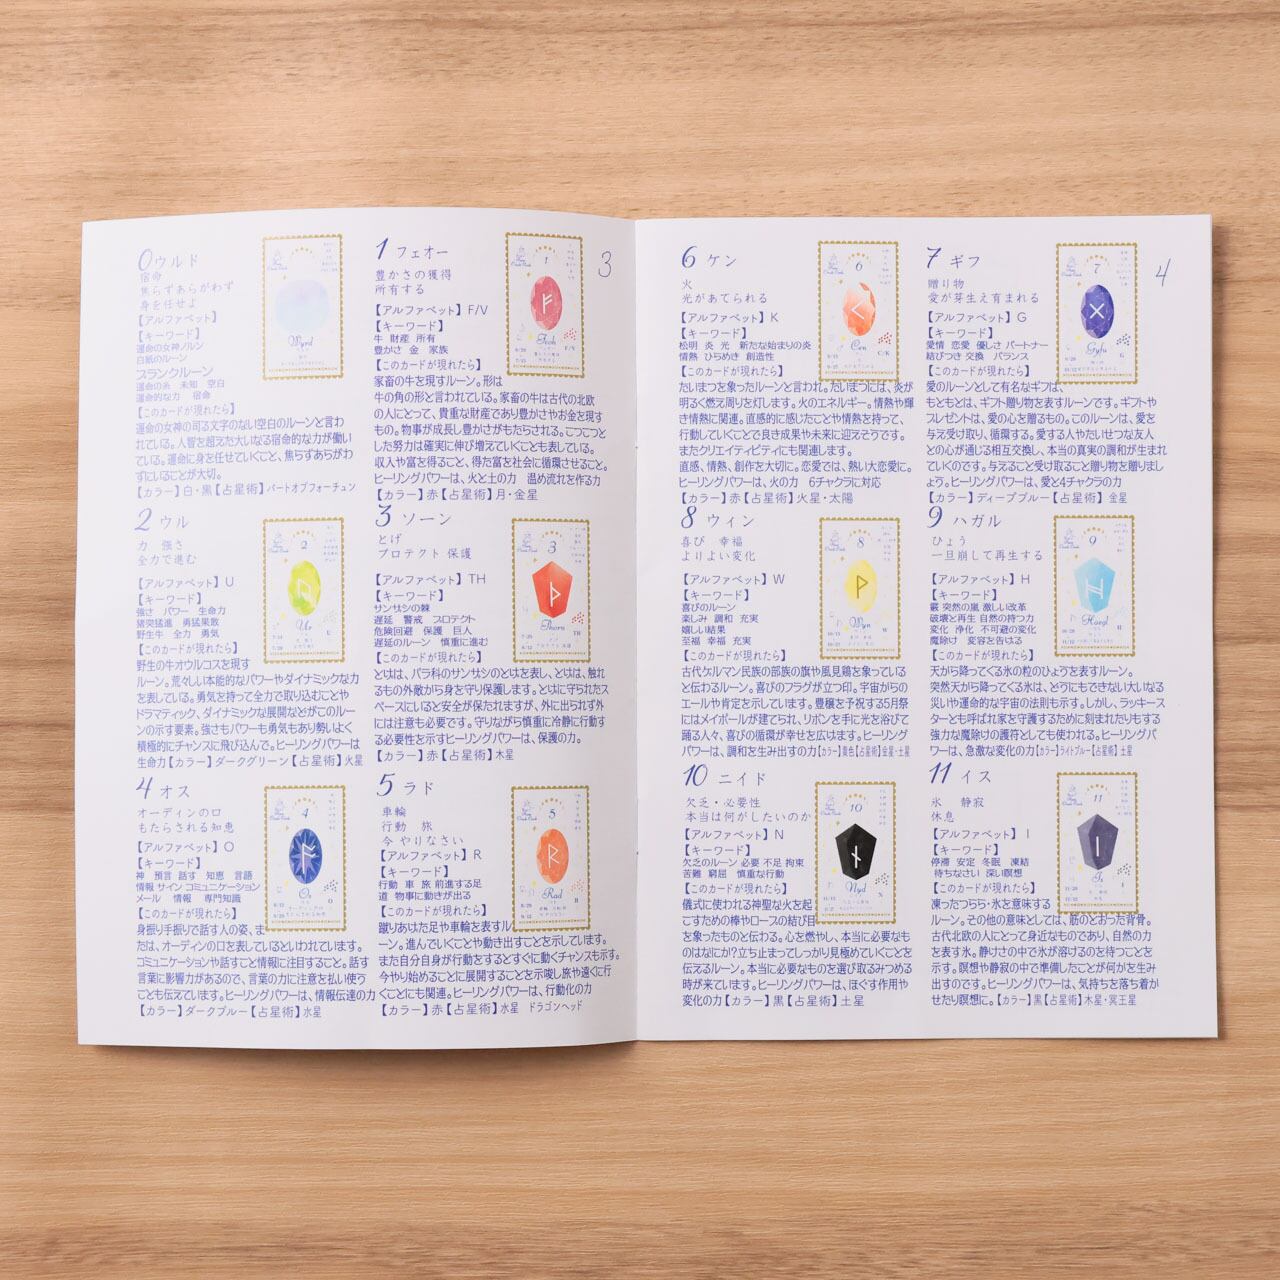 3
0 ウルド
宿命
焦らずあらがわず
身を任せよ
【アルファベット】
【キーワード】
運命の女神ノルン
白紙のルーン
ブランクルーン
運命の糸 未知 空白
運命的な力 宿命
【このカードが現れたら】
運命の女神の司る文字のない空白のルーンと言わ
れている。人智を超えた大いなる宿命的な力が働い
ている。運命に身を任せていくこと、焦らずあらがわ
ずにいることが大切。
【カラー】白・黒【占星術】パートオブフォーチュン
Wyrd
1 フェオー
豊かさの獲得
所有する
【アルファベット】F/V
【キーワード】
牛 財産 所有
豊かさ 金 家族
【このカードが現れたら】
家畜の牛を現すルーン。形は
牛の角の形と言われている。家畜の牛は古代の北欧
の人にとって、貴重な財産であり豊かさやお金を現す
もの。物事が成長し豊かさがもたらされる。こつこつと
した努力は確実に伸び増えていくことも表している。
収入や富を得ること、得た富を社会に循環させること。
ヒーリングパワーは、火と土の力 温め流れを作る力
【カラー】赤【占星術】月・金星
1
Feoh
F/V
2 ウル
力 強さ
全力で進む
【アルファベット】U
【キーワード】
強さ パワー 生命力
猪突猛進 勇猛果敢
野生牛 全力 勇気
【このカードが現れたら】
野生の牛オウルコスを現す
ルーン。荒々しい本能的なパワーやダイナミックな力
を表している。勇気を持って全力で取り込むことや
ドラマティック、ダイナミックな展開などがこのルー
ンの示す要素。強さもパワーも勇気もあり勢いよく
積極的にチャンスに飛び込んで。ヒーリングパワーは
生命力【カラー】ダークグリーン【占星術】火星
2
Ur
U
3 ソーン
とげ
プロテクト 保護
【アルファベット】TH
【キーワード】
サンザシの棘
遅延 警戒 プロテクト
危険回避 保護 巨人
遅延のルーン 慎重に進む
【このカードが現れたら】
とげは、バラ科のサンザシのとげを表し、とげは、触れ
るもの外敵から身を守り保護します。とげに守られたス
ペースにいると安全が保たれますが、外に出られず外
には注意も必要です。守りながら慎重に冷静に行動す
る必要性を示すヒーリングパワーは、保護の力。
【カラー】赤【占星術】木星
3
Thorn
TH
4 オス
オーディンの口
もたらされる知恵
【アルファベット】O
【キーワード】
神 預言 話す 知恵 言語
情報 サイン コミュニケーション
メール 情報 専門知識
【このカードが現れたら】
身振り手振りで話す人の姿、ま
たは、オーディンの口を表しているといわれています。
コミュニケーションや話すこと情報に注目すること。話す
言葉に影響力があるので、言葉の力に注意を払い使う
ことも伝えています。ヒーリングパワーは、情報伝達の力
【カラー】ダークブルー【占星術】水星
4
Os
O
5 ラド
車輪
行動 旅
今 やりなさい
【アルファベット】R
【キーワード】
行動 車 旅 前進する足
道 物事に動きが出る
【このカードが現れたら】
蹴りあげた足や車輪を表すル
ーン。進んでいくことや動き出すことを示しています。
また自分自身が行動をするとすぐに動くチャンスも示す。
今やり始めることに展開することを示唆し旅や遠くに行
くことにも関連。ヒーリングパワーは、行動化の力
【カラー】赤【占星術】水星 ドラゴンヘッド
5
Rad
R
4
6 ケン
火
光があてられる
【アルファベット】K
【キーワード】
松明 炎 光 新たな始まりの炎
情熱 ひらめき 創造性
【このカードが現れたら】
たいまつを象ったルーンと言われ。たいまつには、炎が
明るく燃え周りを灯します。火のエネルギー。情熱や輝
き情熱に関連。直感的に感じたことや情熱を持って、
行動していくことで良き成果や未来に迎えそうです。
またクリエイティビティにも関連します。
直感、情熱、創作を大切に。恋愛では、熱い大恋愛に。
ヒーリングパワーは、火の力 6チャクラに対応
【カラー】赤【占星術】火星・太陽
6
Cen
C/K
7 ギフ
贈り物
愛が芽生え育まれる
【アルファベット】G
【キーワード】
愛情 恋愛 優しさ パートナー
結びつき 交換 バランス
【このカードが現れたら】
愛のルーンとして有名なギフは、
もともとは、ギフト贈り物を表すルーンです。ギフトや
プレゼントは、愛の心を贈るもの。このルーンは、愛を
与え受け取り、循環する。愛する人やたいせつな友人
との心が通じる相互交換し、本当の真実の調和が生まれ
ていくのです。与えること受け取ること贈り物を贈りまし
ょう。ヒーリングパワーは、愛と4チャクラの力
【カラー】ディープブルー【占星術】 金星
7
Gyfu
G
8 ウィン
喜び 幸福
よりよい変化
【アルファベット】W
【キーワード】
喜びのルーン
楽しみ 調和 充実
嬉しい結果
至福 幸福 充実
【このカードが現れたら】
古代ゲルマン民族の部族の旗や風見鶏を象っている
と伝わるルーン。喜びのフラグが立つ印。宇宙からの
エールや肯定を示しています。豊穣を予祝する5月祭
にはメイポールが建てられ、リボンを手に光を浴びて
踊る人々、喜びの循環が幸せを広げます。ヒーリング
パワーは、調和を生み出す力【カラー】黄色【占星術】金星・土星
8
Wyn
W
9 ハガル
ひょう
一旦崩して再生する
【アルファベット】H
【キーワード】
霰 突然の嵐 激しい改革
破壊と再生 自然の持つ力
変化 浄化 不可避の変化
魔除け 変容を告げる
【このカードが現れたら】
天から降ってくる氷の粒のひょうを表すルーン。
突然天から降ってくる氷は、どうにもできない大いなる
災いや運命的な宇宙の法則も示す。しかし、ラッキース
ターとも呼ばれ家を守護するために刻まれたりもする
強力な魔除けの護符としても使われる。ヒーリングパ
ワーは、急激な変化の力【カラー】ライトブルー【占星術】土星
9
Haegl
H
10 ニイド
欠乏・必要性
本当は何がしたいのか
【アルファベット】N
【キーワード】
欠乏のルーン 必要 不足 拘束
苦難 窮屈 慎重な行動
【このカードが現れたら】
儀式に使われる神聖な火を起
こすための棒やロースの結び目
を象ったものと伝わる。心を燃やし、本当に必要なも
のはなにか?立ち止まってしっかり見極めていくことを
伝えるルーン。本当に必要なものを選び取るみつめる
時が来ています。ヒーリングパワーは、ほぐす作用や
変化の力【カラー】黒【占星術】土星
10
Nyd
N
11 イス
氷 静寂
休息
【アルファベット】I
【キーワード】
停滞 安定 冬眠 凍結
待ちなさい 深い瞑想
【このカードが現れたら】
凍ったつらら・氷を意味する
ルーン。その他の意味としては、筋のとおった背骨。
古代北欧の人にとって身近なものであり、自然の力
を表す氷。静けさの中で氷が溶けるのを待つことを
示す。瞑想や静寂の中で準備したことが何かを生み
出すのです。ヒーリングパワーは、気持ちを落ち着か
せたり瞑想に。【カラー】黒【占星術】木星・冥王星
11
Is
I